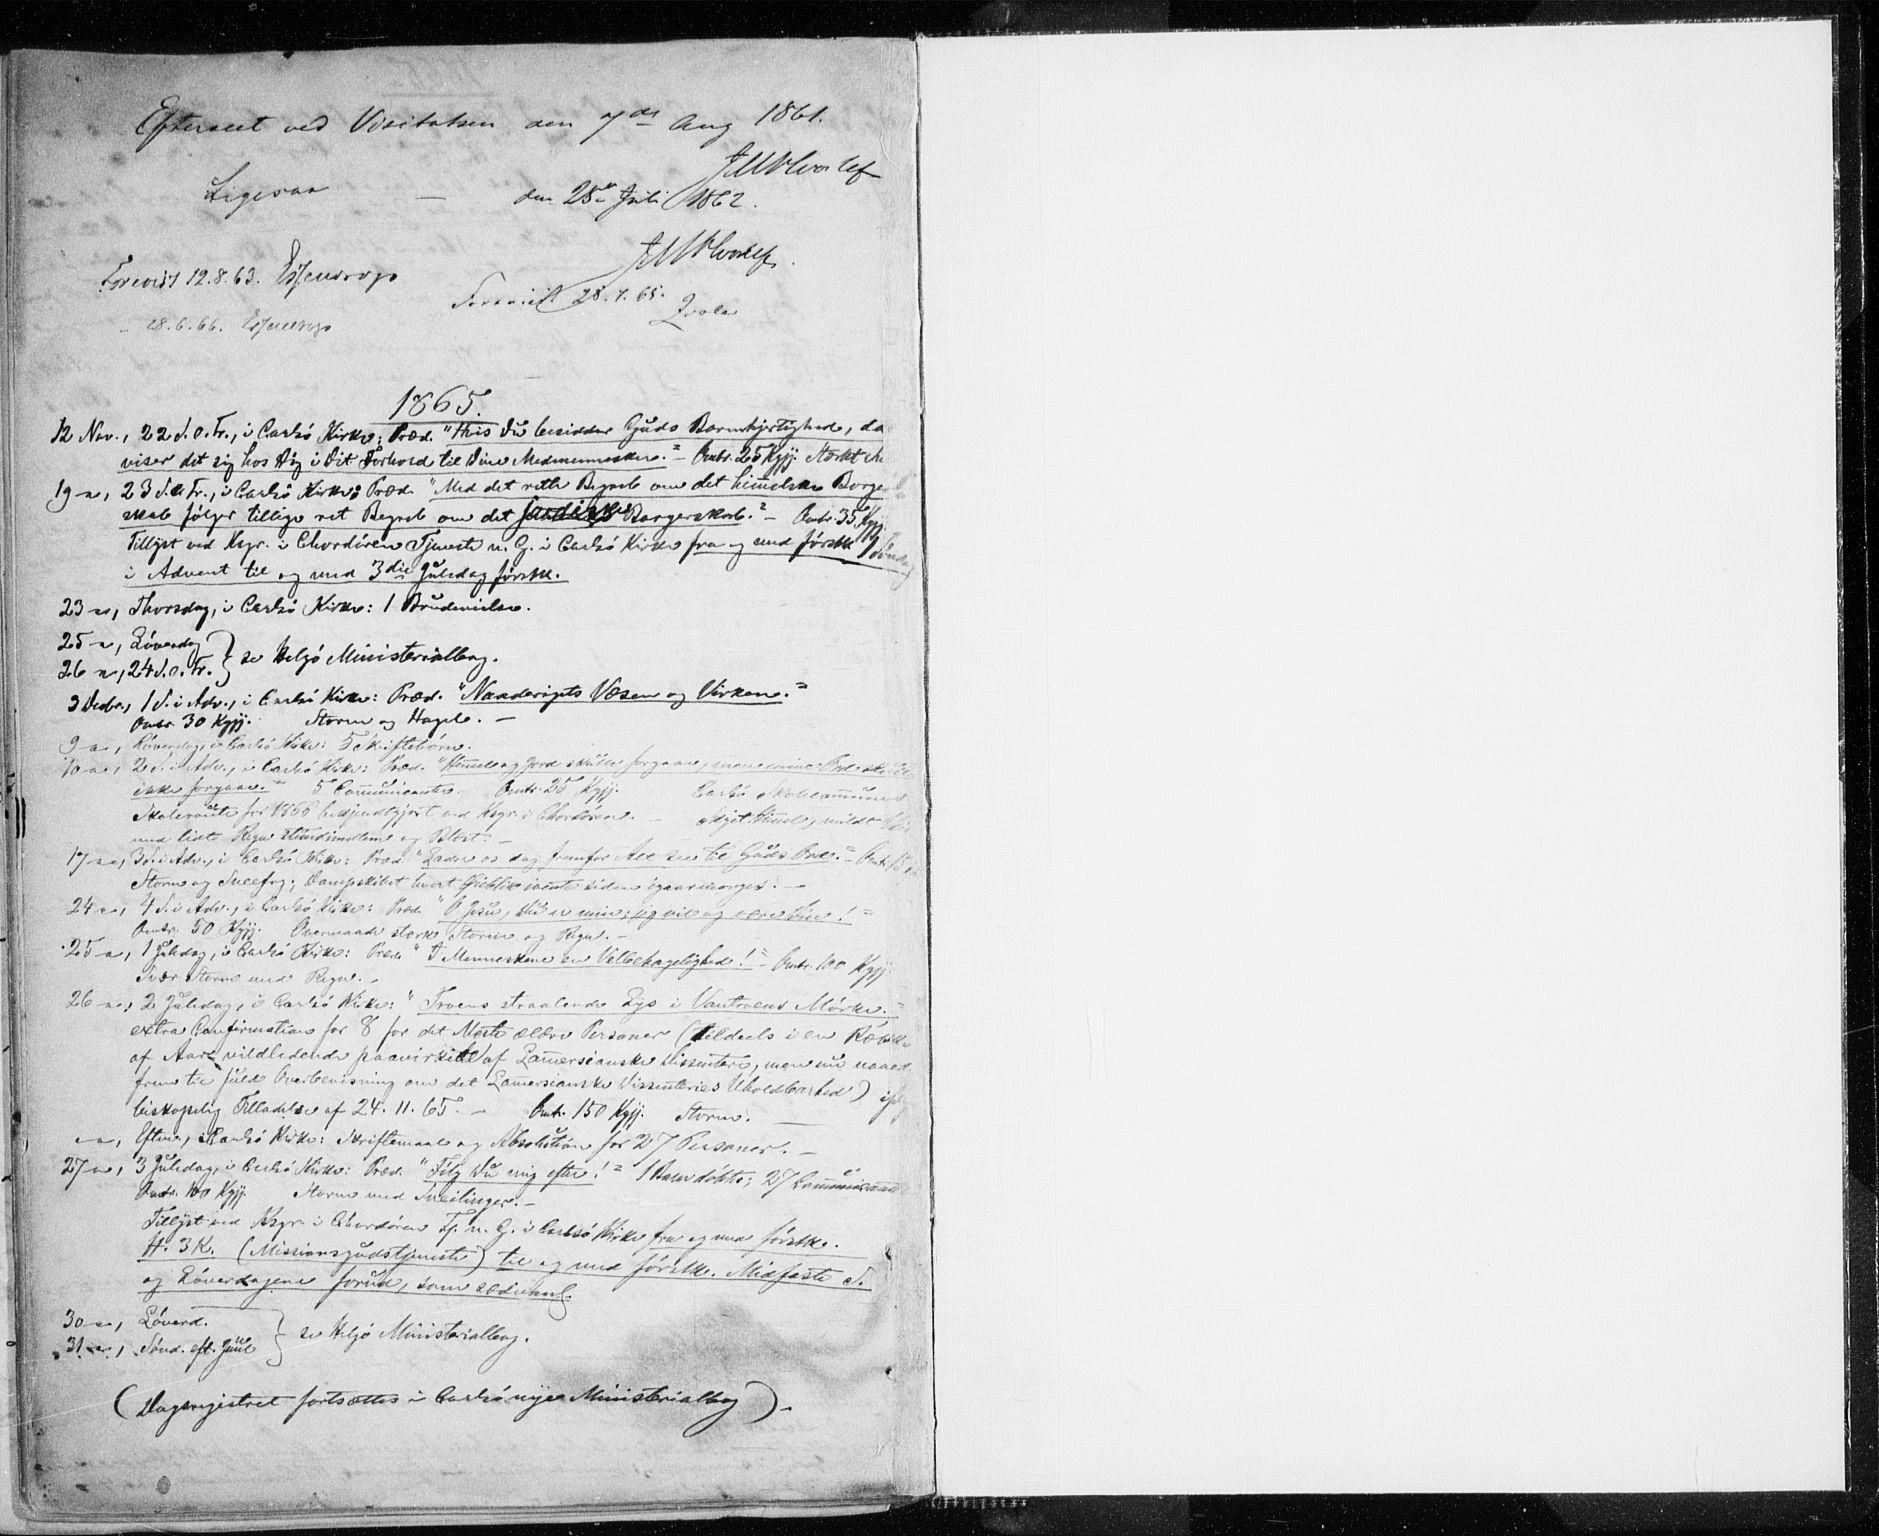 Efterseet ved Visitatsen den 7de Aug 1861.
Ligesaa — den 28de Juli 1862.
Forevist 12.8.63.
Foreviist 28.7.65.
28.6.66.
1865.
12 Nov., 22 S. e. Tr., i Carlsö Kirke: Præd. "Hvis Du besidder Guds Barmhjertighed, da
viser det sig hos Dig i Dit Forhold til Dine Medmennesker." – Omtr. 25 Kgjg. Stærkt
19 –, 23 S. e. Tr., i Carlsö Kirke: Præd. "Med det rette Begreb om det himmelske Borger
skab følger tillige ret Begreb om det jordiske Borgerskab." – Omtr. 35 Kgjg.
Tillyst ved Ksgr. i Chordören Tjeneste m. G. i Carlsö Kirke fra og med førstk. 1 Søndag
i Advent til og med 3die Juledag førstk.
23 –, Thorsdag, i Carlsö Kirke: 1 Brudevielse.
25 –, Løverdag
26 –, 24 S. e. Tr. } se Helgö Ministerialbog.
3 Decbr., 1 S. i Adv., i Carlsö Kirke: Præd. "Naaderigets Væsen og Virken."
Omtr. 30 Kgjg. Storm og Hagel. –
9 –, Løverdag, i Carlsö Kirke: 5 Skriftebörn.
10 –, 2 S. i Adv., i Carlsö Kirke: Præd. "Himmel og Jord skulle forgaae, men mine Ord skulle
ikke forgaae." 5 Communicanter. Omtr. 25 Kgjg. Carlsö Skolecommunes
Skoleroute for 1866 bekjendtgjort ved Ksgr. i Chordören. – Skyet Himmel, mildt
med lidt Regn stundimellem og Blæst. –
17 –, 3 S. i Adv., i Carlsö Kirke: Præd. "Lader os dog fremfor Alt see til Guds Ord." – Omtr. 15
Storm og Sneefog; Dampskibet hvert Øieblik ivente siden igaarmorges. –
24 –, 4 S. i Adv., i Carlsö Kirke: Præd. "O Jesu, Du er min; jeg vil og være Din!"
Omtr. 50 Kgjg. Overmaade stærk Storm og Regn. –
25 –, 1 Juledag, i Carlsö Kirke: Præd. "I Menneskene en Velbehagelighed!" – Omtr. 100 Kgjg.
Svær Storm med Regn. –
26 –, 2 Juledag, i Carlsö Kirke: "Troens straalende Lys i Vantroens Mørke."
extra Confirmation for 8 for det Meste ældre Personer (tildeels i en Række
af Aar vildledende paavirkede af Lammersianske Dissentere, men nu naaede
frem til fuld Overbevisning om det Lammersianske Dissenteries Uholdbarhed)
biskopelig Tilladelse af 24.11.65. – Omtr. 150 Kgjg. Storm. –
–, Efterm., i Carlsö Kirke: Skriftemaal og Absolution for 27 Personer. –
27 –, 3 Juledag, i Carlsö Kirke: Præd. "Følg Du mig efter!" 1 Barn døbtes; 27 Communicanter
Omtr. 100 Kgjg. Storm med Sneilinger. –
Tillyst ved Ksgr. i Chordören Tj. m. G. i Carlsö Kirke fra og med førstk.
H. 3 K. (Missionsgudstjeneste) til og med førstk. Midfaste S.
og Løverdagene forud, som sædvanl.
30 –, Løverd.
31 –, Sønd. eft. Juul } se Helgö Ministerialbog.
(Dagsregistret fortsættes i Carlsö nye Ministerialbog). –